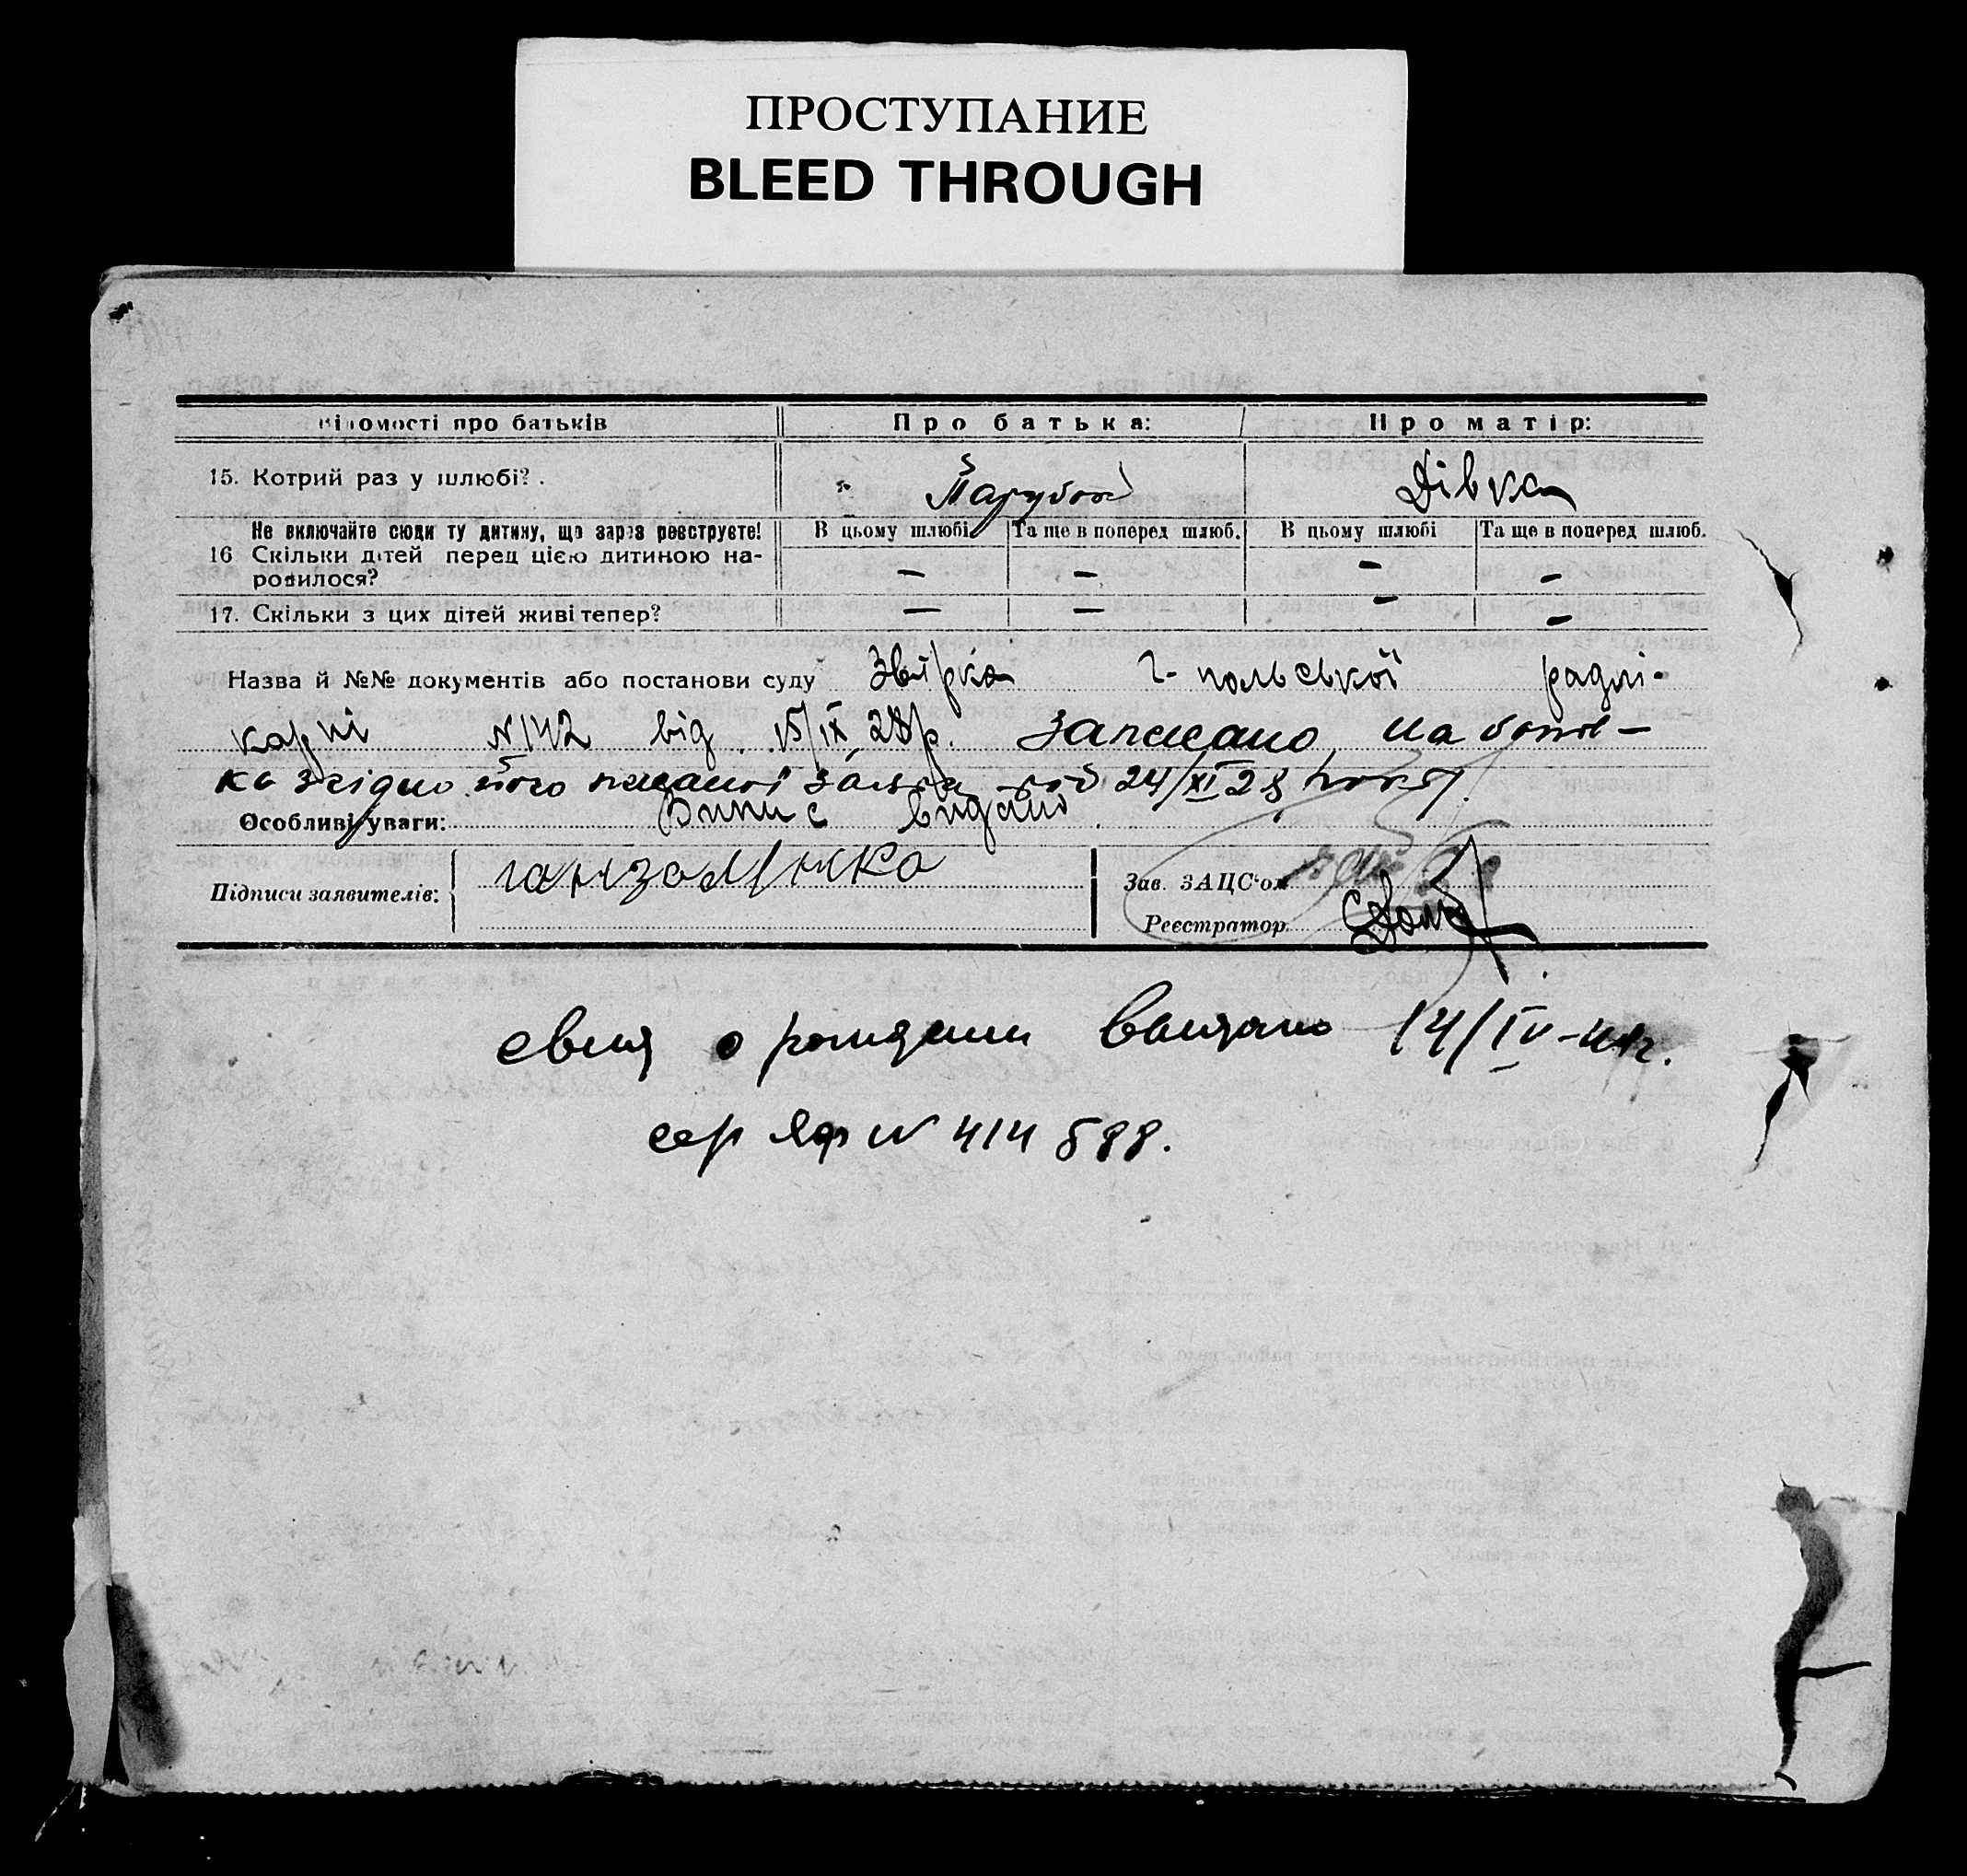 ПРОСТУПАНИЕ
BLEED THROUGH
відомості про батьків Про батька: Про матір:
15. Котрий раз у шлюбі? . Парубок Дівка
Не включайте сюди ту дитину, що зараз реєструєте! В цьому шлюбі Та ще в поперед шлюб. В цьому шлюбі Та ще в поперед шлюб.
16 Скільки дітей перед цією дитиною на- — — — —
родилося?
17. Скільки з цих дітей живі тепер? — — — —
Назва й №№ документів або постанови суду г-польської
карні N142 від 15/IX 28р. Записано на бать-
ка згідно його писаної заяви від 24/XI 28
Особливі уваги: Випис видано
Підписи заявителів:
Зав. ЗАЦС'ом
Реєстратор
свид о рождении выдано 14/IV-
сер N 414588.